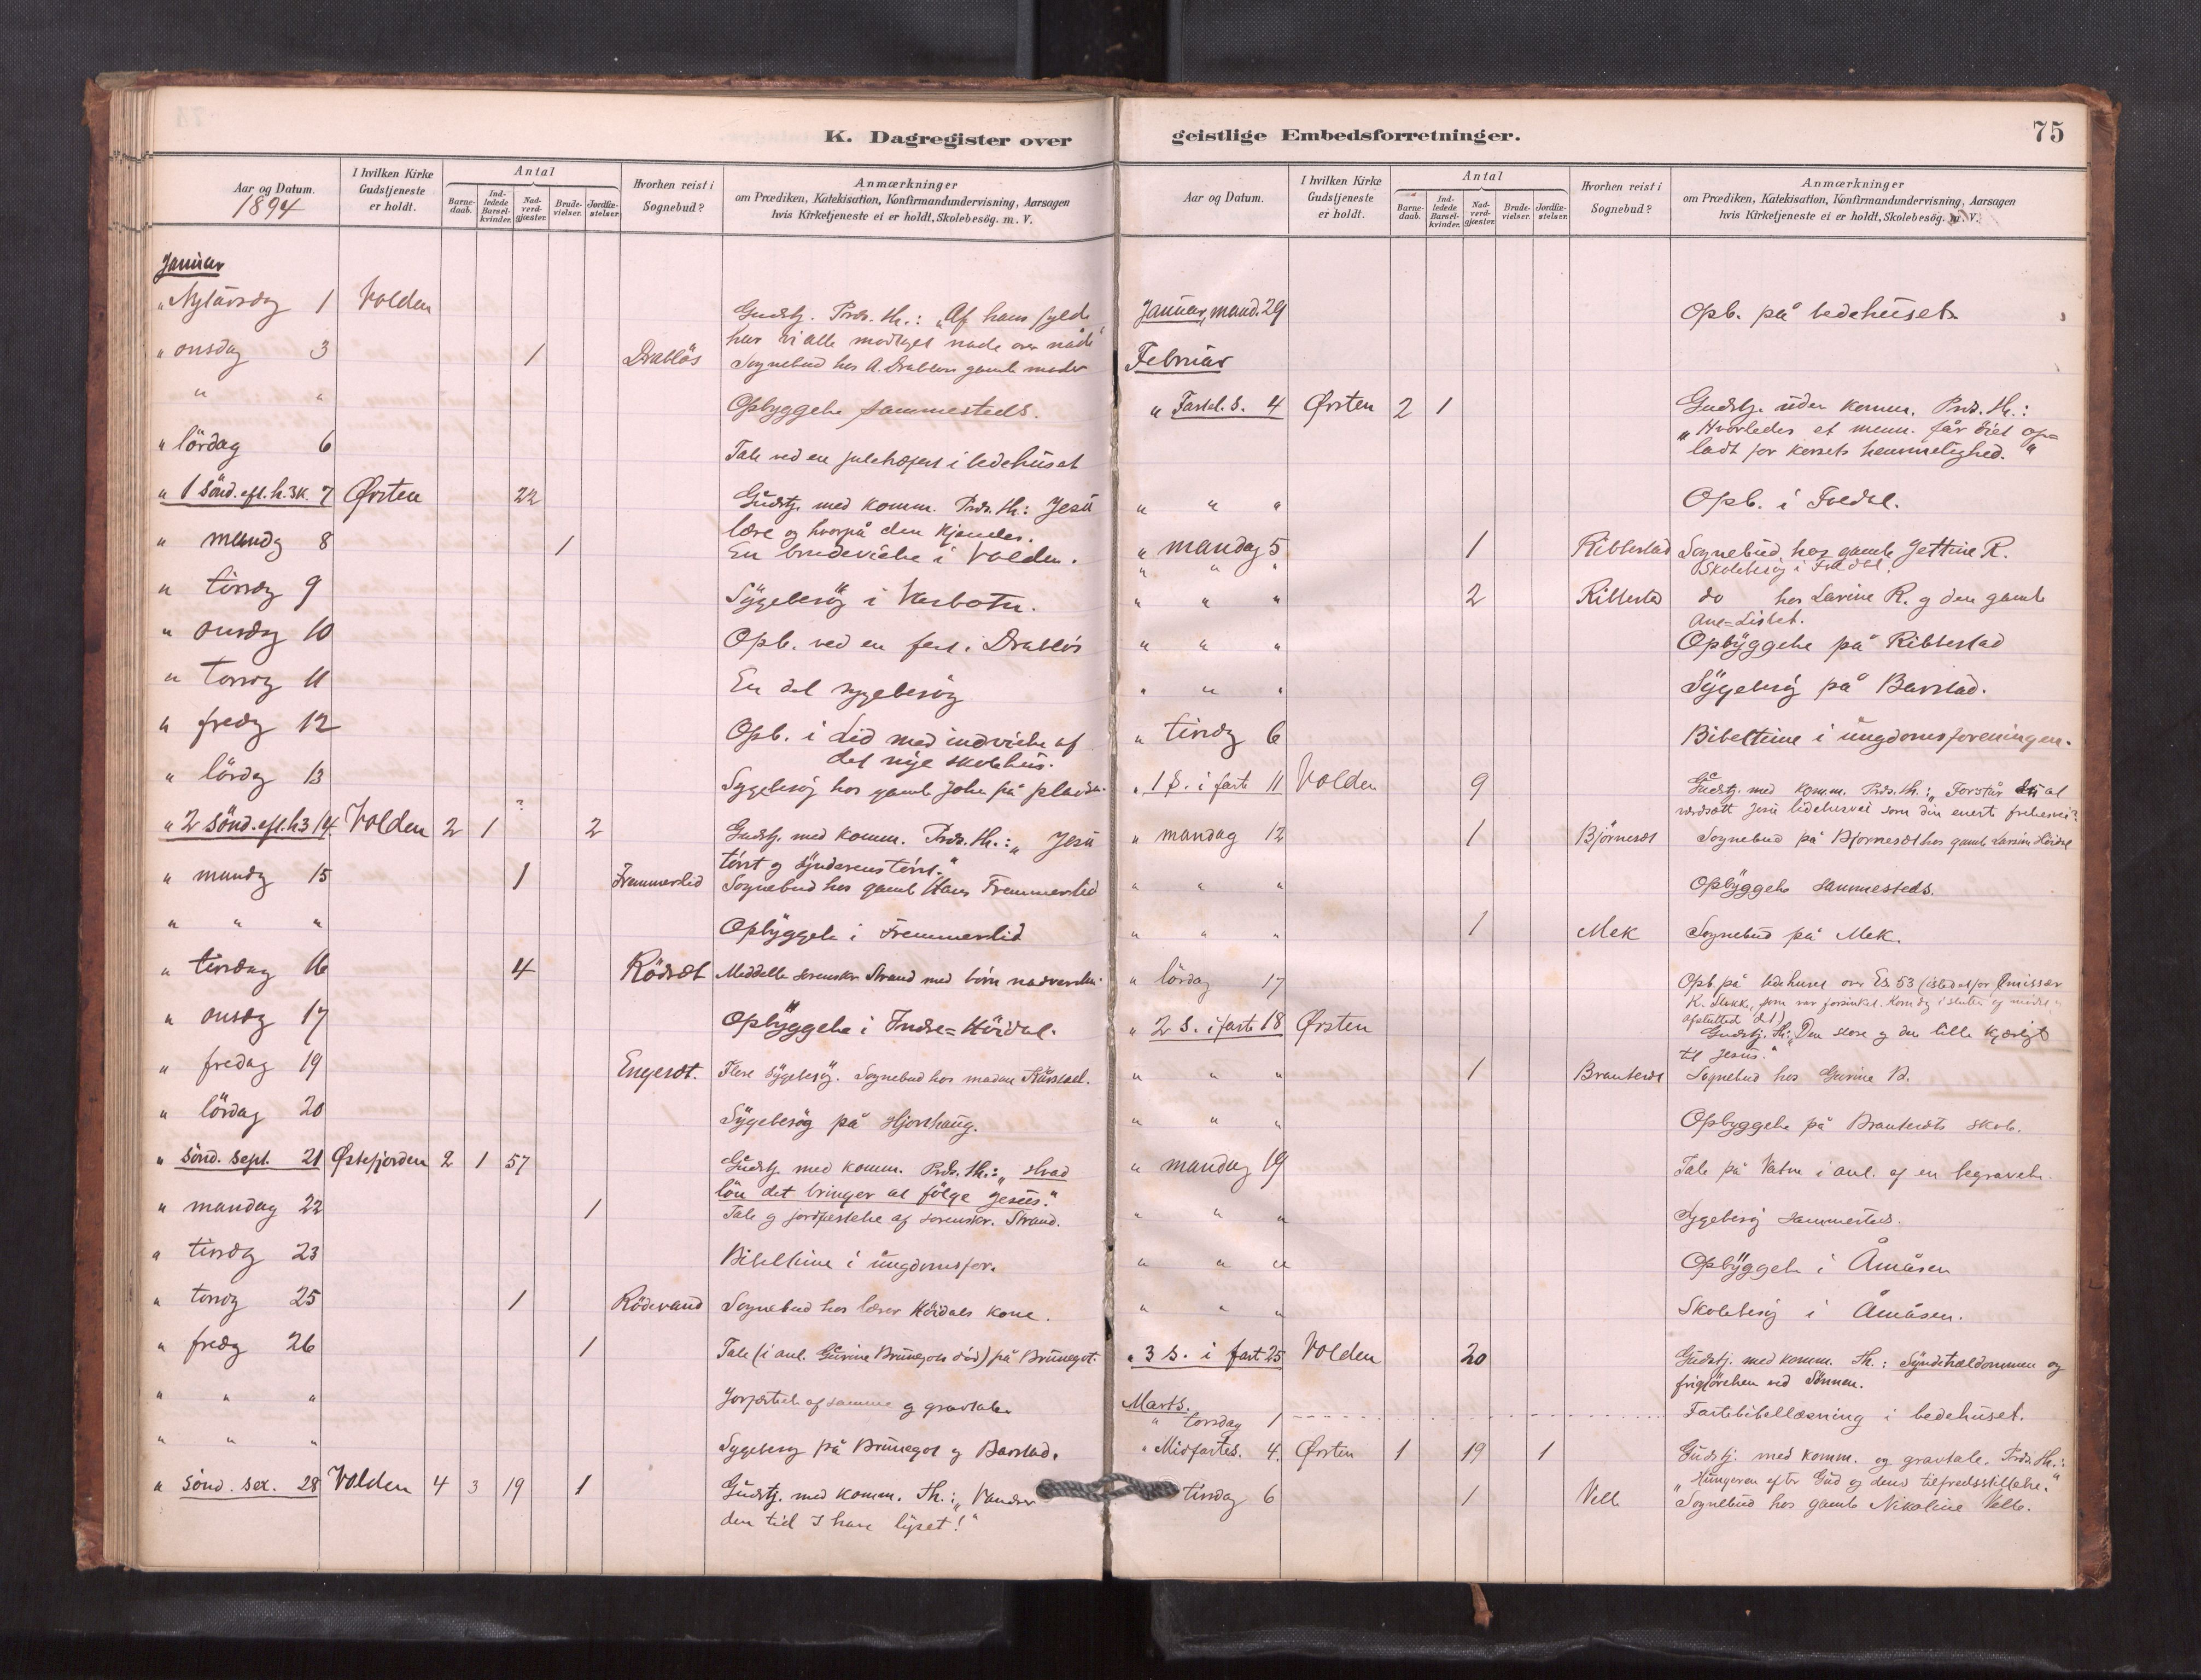 K. Dagregister over
Aar og Datum.
1894
I hvilken Kirke Gudstjeneste er holdt.
Antal
Barne-daab.
Ind-ledede Barsel-kvinder.
Nad-verd-gjæster.
Brude-vielser.
Jordfæ-stelser.
Hvorhen reist i Sognebud?
Anmærkninger
om Prædiken, Katekisation, Konfirmandundervisning, Aarsagen
hvis Kirketjeneste ei er holdt, Skolebesög. m. V.
Januar
" Nytårsdag 1 Volden Gudstj. Præd. th.: "Af hans fylde
har vi alle modtaget nåde over nåde"
" onsdag 3 1 Drabløs Sognebud hos A. Drabløs gamle moder
" " Opbyggelse sammesteds.
" lördag 6 Tale ved en juletræfest i bedehuset
" 1 sönd. eft. h. 3K. 7 Ørsten 22 Gudstj. med komm. Præd. th.: Jesu
lære og hvorpå den kjendes.
" mandg 8 1 En brudevielse i Volden.
" tirsdg 9 Sygebesög i Vasbotn.
" onsdg 10 Opb. ved en fest i Drabløs
" torsdg 11 En del sygebesög
" fredg 12 Opb. i Lid med indvielse af
det nye skolehus.
" lördg 13 Sygebesög hos gamle John på pladsen.
" 2 sönd. eft. h3 14. Volden 2 1 ? 2 Gudstj. med komm. Præd. th.: "Jesu
törst og synderens törst."
" mandg 15 1 Fremmerlid Sognebud hos gamle Hans Fremmerlid
" " " Opbyggelse i Fremmerlid
" tirsdag 16 4 Rödsæt Meddelte sorenskr. Strand med börn nadverden.
" onsdg 17 Opbyggelse i Indre=Höidal.
" fredag 19 Engesæt. Flere sygebesög. Sognebud hos madam Aarseth.
" lördag 20 Sygebesög på Hjorthaug.
" sönd. sept. 21 Østefjorden 2 1 57 Gudstj. med komm. Præd. th.: "Hvad
lön det bringer at fölge Jesus."
" mandag 22 1 Tale og jordfæstelse af sorenskr. Strand.
" tirsdg 23 Bibeltime i ungdomsfor.
" torsdg 25 1 Rödevand Sognebud hos lærer Höidals kone.
" fredg 26 1 Tale (i anl. Gurine Brunegots död) på Brunegot.
" " " Jordfæstelse af samme og gravtale
" " " Sygebesög på Brunegot og Barstad.
" sönd. sex. 28 Volden 4 3 19 1 Gudstj. med komm. Th.: "Vandrer
den tid I have lyset!"
geistlige Embedsforretninger.
75
Aar og Datum.
I hvilken Kirke Gudstjeneste er holdt.
Antal
Barne-daab.
Ind-ledede Barsel-kvinder.
Nad-verd-gjæster.
Brude-vielser.
Jordfæ-stelser.
Hvorhen reist i Sognebud?
Anmærkninger
om Prædiken, Katekisation, Konfirmandundervisning, Aarsagen
hvis Kirketjeneste ei er holdt, Skolebesög. m. V.
Januar, mand. 29 Opb. på bedehuset.
Februar
" Fastel. s. 4 Ørsten 2 1 Gudstj. uden komm. Præd. th.:
"Hvorledes et menn. får öiet op=
ladt for korsets hemmelighed."
" " " Opb. i Foldal.
" mandag 5 1 Ribbestad Sognebud hos gamle Jettine R.
" " " Skolebesög i
" " " 2 Ribbestad do hos Lavine R. og den gamle
Ane=Lisbet.
" " " Opbyggelse på Ribbestad
" " " Sygebesög på Barstad.
" tirsdg 6 Bibeltime i ungdomsforeningen.
" 1 S. i faste 11 Volden 9 Gudstj. med komm. Præd. th.: "Forstår du at
værdsætte Jesu lidelsesvei som din eneste frelsesvei?
" mandag 12 1 Björnesæt Sognebud på Björnesæt hos gamle
" " " Opbyggelse sammesteds.
" " " 1 Mek Sognebud på Mek.
" lördag 17 Opb. på bedehuset over Es. 53 (istedetfor Emissær
K. Slakk, som var forsinket. Kom dog i slutten og mödte
afsluttet det)
" 2 S. i faste 18 Ørsten Gudstj. Th.: "Den store og den lille kjærligh.
til Jesus."
" " " 1 Brautesæt Sognebud hos Gurine B.
" " " Opbyggelse på Brautesæts skole.
" mandag 19 Tale på Vatne i anl. af en begravelse.
" " " Sygebesög sammesteds.
" " " Opbyggelse i Åmåsen
" " " Skolebesög i Åmåsen.
" 3 S. i fast 25 Volden 20 Gudstj. med komm. Th.: Syndetrældommen og
frigjörelsen ved Sönnen.
Marts.
" torsdag 1 Fastebibellæsning i bedehuset.
" Midfastes. 4. Ørsten 1 19 1 Gudstj. med komm. og gravtale. Præd. th.:
"Hungeren efter Gud og dens tilfredsstillelse."
tirsdag 6 1 Velle Sognebud hos gamle Nikoline Velle.